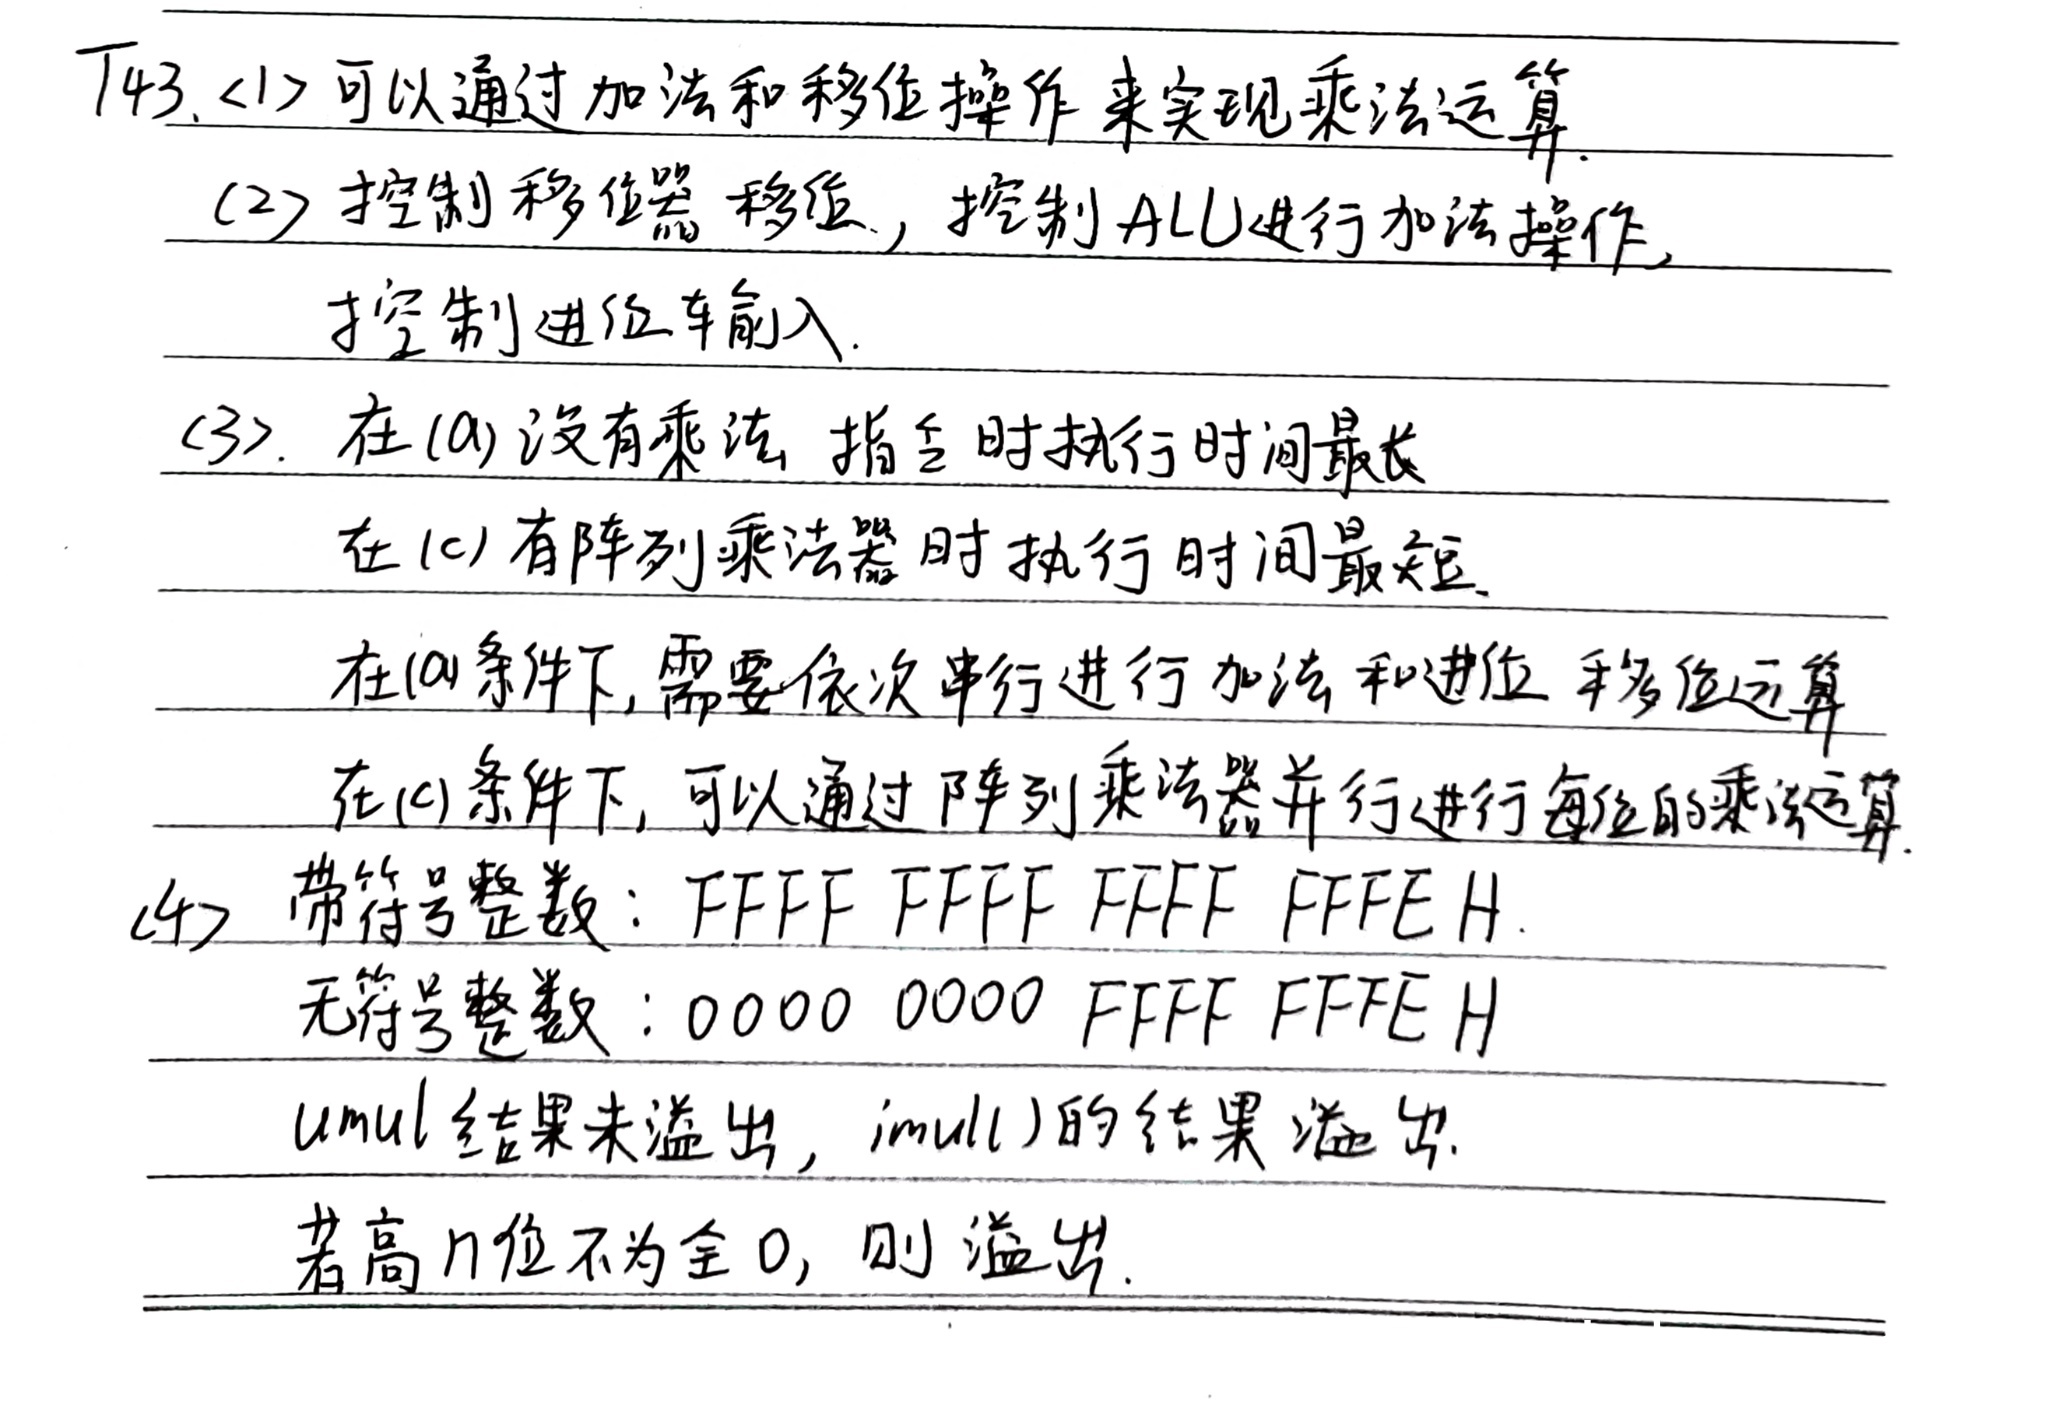 T43.<1>可以通过加法和移位操作来实现乘法运算.
(2)控制移位器移位,控制ALU进行加法操作,
控制进位车俞入.
(3).在(a)没有乘法指令时执行时间最长
在(c)有阵列乘法器时执行时间最短.
在(a)条件下,需要依次串行进行加法和进位移位运算
在(c)条件下,可以通过阵列乘法器并行进行每位的乘法运算.
(4)带符号整数:FFFF FFFF FFFF FFFE H.
无符号整数:0000 0000 FFFF FFFE H
umul结果未溢出,imul()的结果溢出.
若高n位不为全0,则溢出.